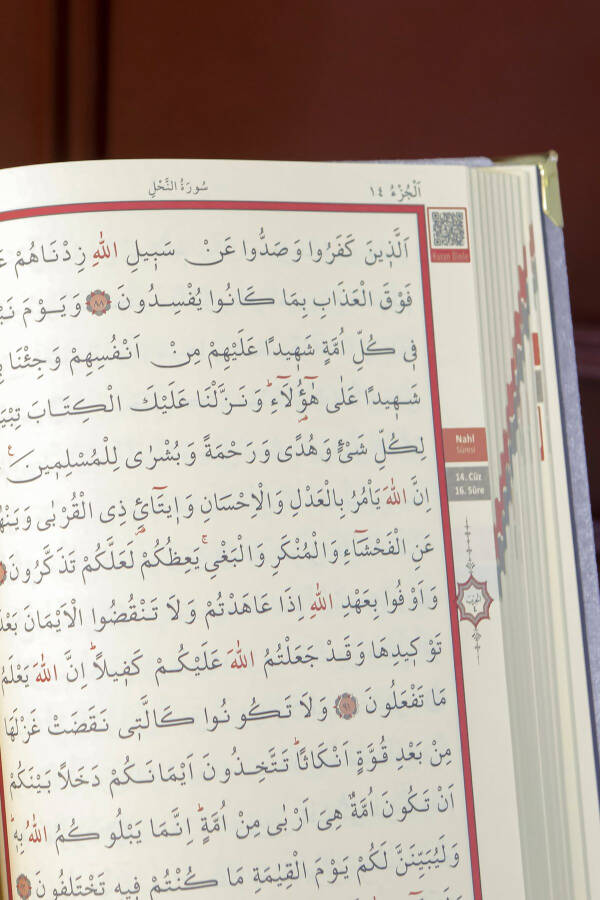 سُورَةُ النَّحْلِ
اَلْجُزْءُ ١٤
اَلَّذِينَ كَفَرُوا وَصَدُّوا عَنْ سَبِيلِ اللّٰهِ زِدْنَاهُمْ
فَوْقَ الْعَذَابِ بِمَا كَانُوا يُفْسِدُونَ ٨٨ وَيَوْمَ
فِي كُلِّ اُمَّةٍ شَهِيدًا عَلَيْهِمْ مِنْ اَنْفُسِهِمْ وَجِئْنَا
شَهِيدًا عَلٰى هٰٓؤُ۬لَٓاءِۜ وَنَزَّلْنَا عَلَيْكَ الْكِتَابَ
لِكُلِّ شَيْءٍ وَهُدًى وَرَحْمَةً وَبُشْرٰى لِلْمُسْلِمِينَ
اِنَّ اللّٰهَ يَأْمُرُ بِالْعَدْلِ وَالْاِحْسَانِ وَاِيتَٓائِ ذِي الْقُرْبٰى
عَنِ الْفَحْشَٓاءِ وَالْمُنْكَرِ وَالْبَغْيِۚ يَعِظُكُمْ لَعَلَّكُمْ تَذَكَّرُونَ
وَاَوْفُوا بِعَهْدِ اللّٰهِ اِذَا عَاهَدْتُمْ وَلَا تَنْقُضُوا الْاَيْمَانَ
تَوْكِيدِهَا وَقَدْ جَعَلْتُمُ اللّٰهَ عَلَيْكُمْ كَفِيلًاۜ اِنَّ اللّٰهَ يَعْلَمُ
مَا تَفْعَلُونَ ٩١ وَلَا تَكُونُوا كَالَّتِي نَقَضَتْ غَزْلَهَا
مِنْ بَعْدِ قُوَّةٍ اَنْكَاثًاۜ تَتَّخِذُونَ اَيْمَانَكُمْ دَخَلًا بَيْنَكُمْ
اَنْ تَكُونَ اُمَّةٌ هِيَ اَرْبٰى مِنْ اُمَّةٍۜ اِنَّمَا يَبْلُوكُمُ اللّٰهُ بِهِ
وَلَيُبَيِّنَنَّ لَكُمْ يَوْمَ الْقِيٰمَةِ مَا كُنْتُمْ فِيهِ تَخْتَلِفُونَ
Nahl
Sûresi
14. Cüz
16. Sûre